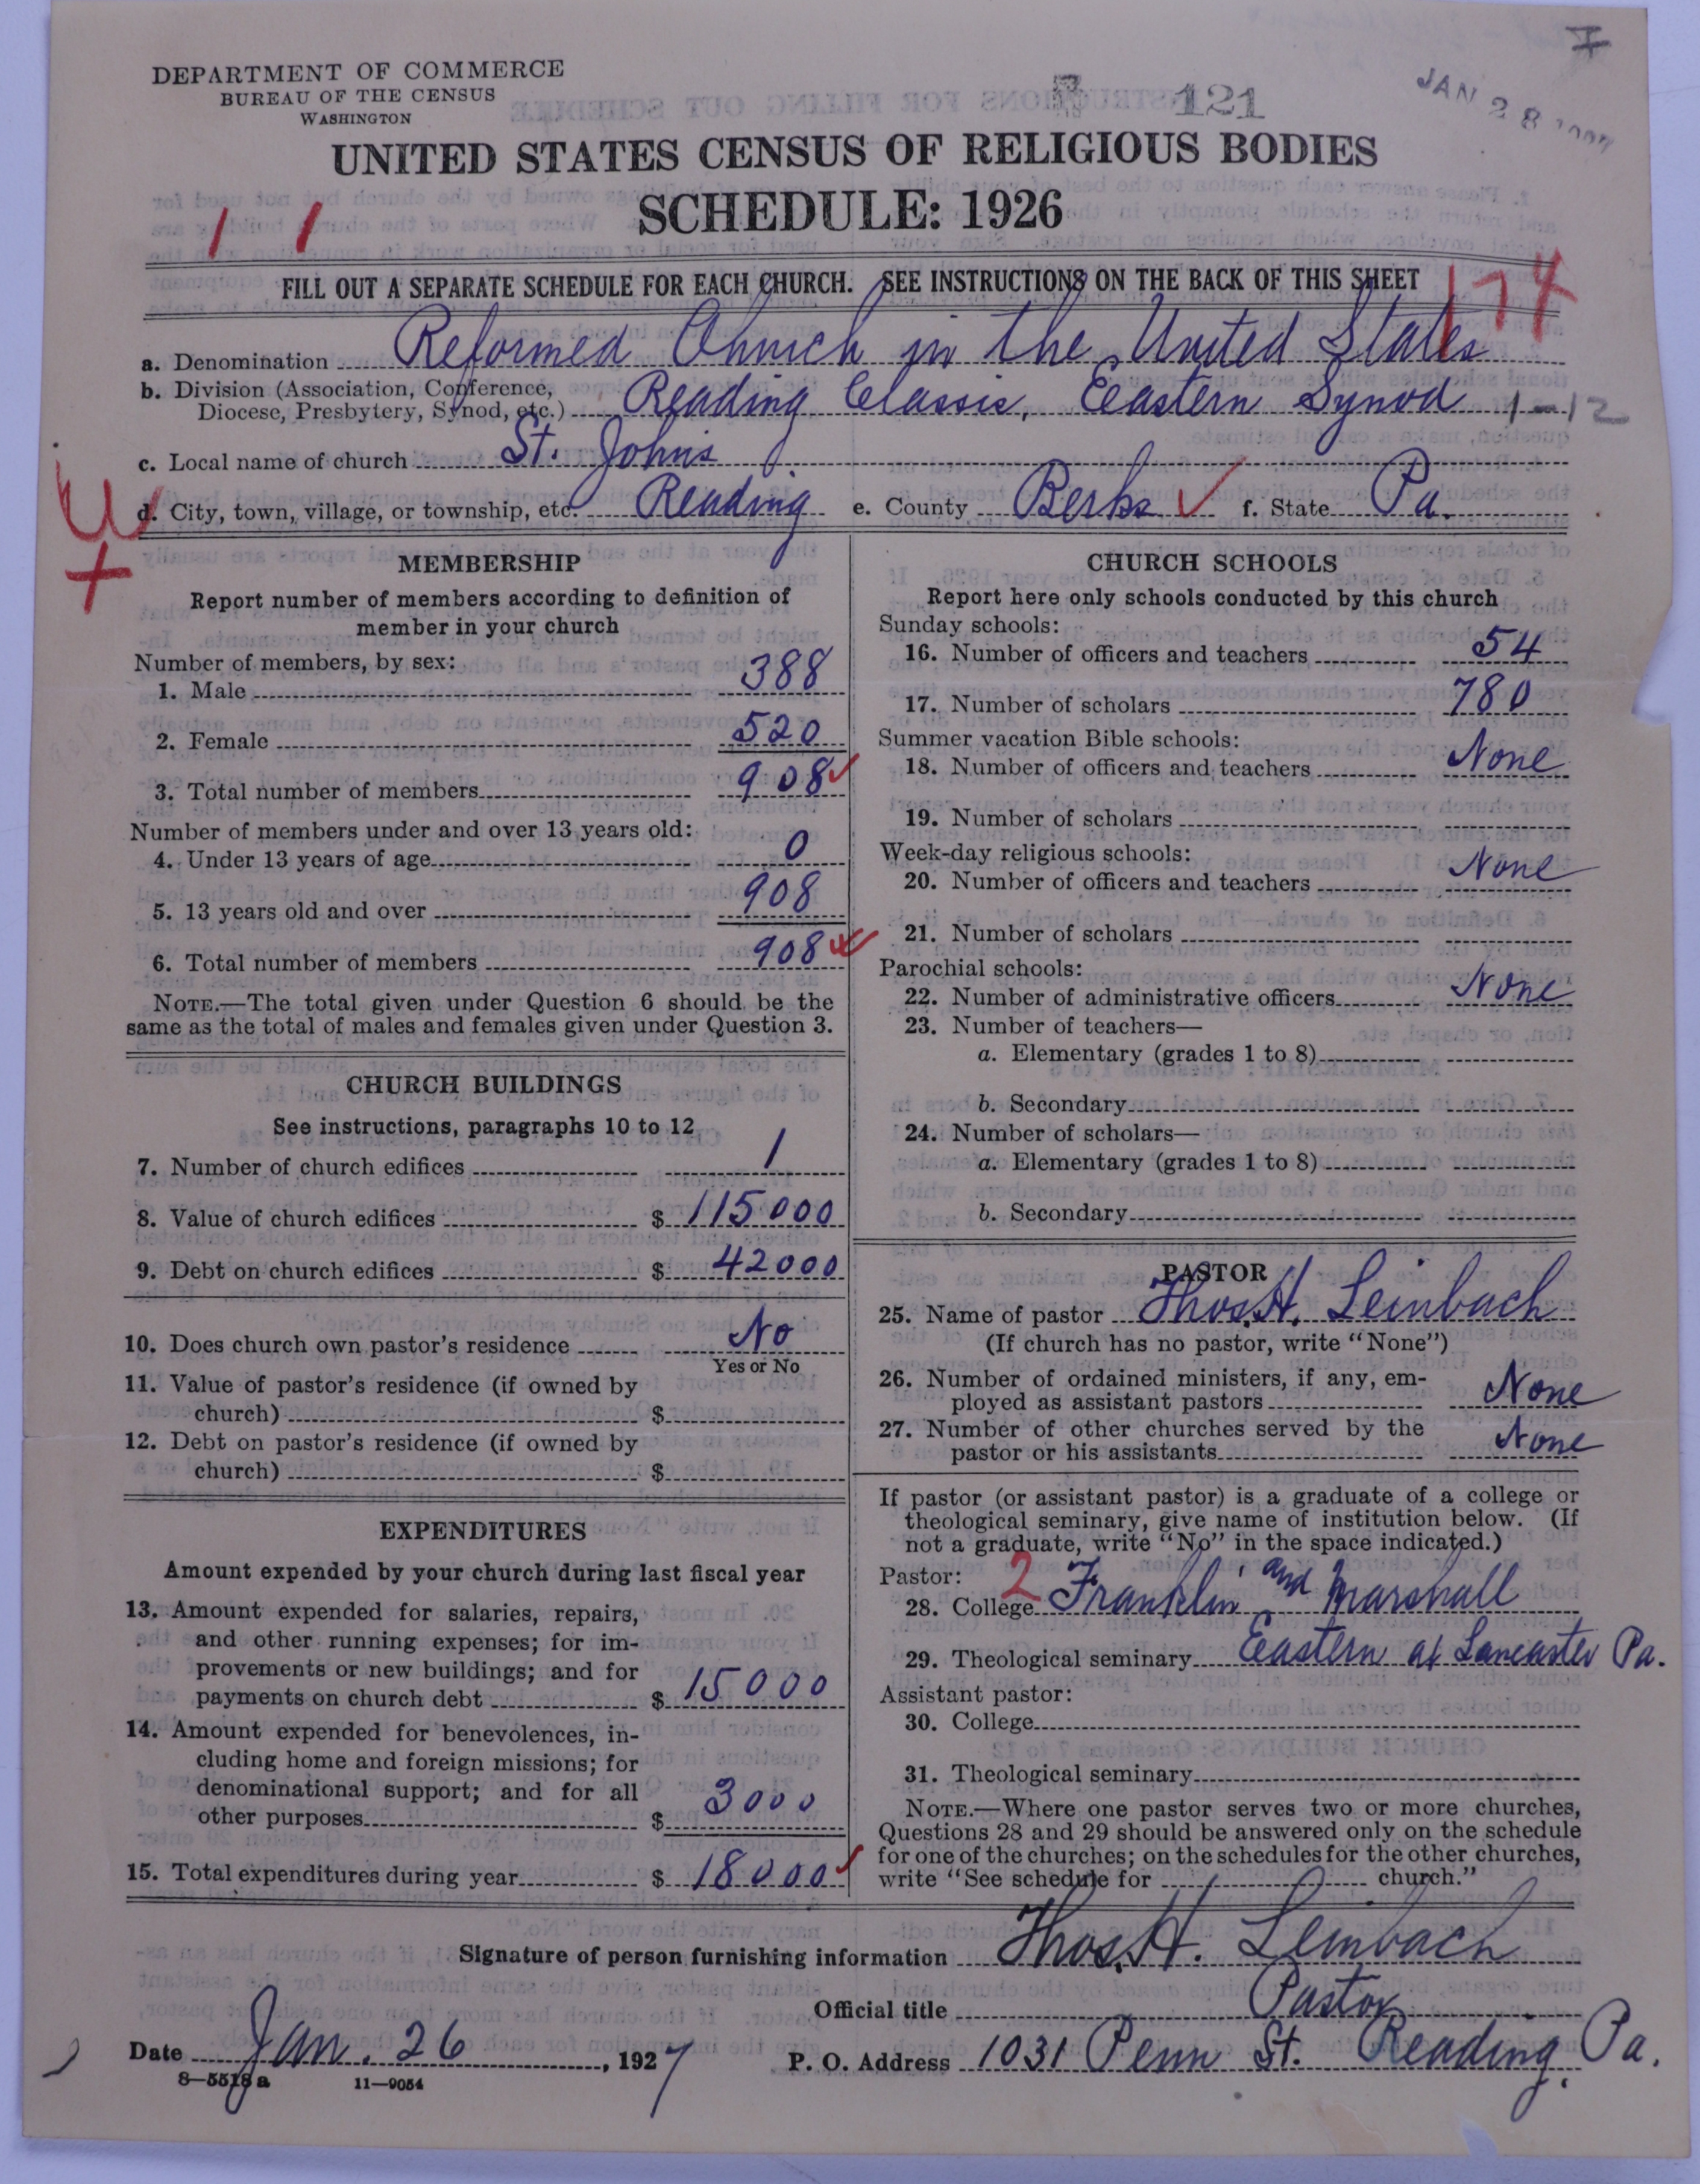 DEPARTMENT OF COMMERCE
BUREAU OF THE CENSUS
WASHINGTON
121
JAN 28
UNITED STATES CENSUS OF RELIGIOUS BODIES
SCHEDULE: 1926
1 1
FILL OUT A SEPARATE SCHEDULE FOR EACH CHURCH. SEE INSTRUCTIONS ON THE BACK OF THIS SHEET
174
a. Denomination Reformed Church in the United States
b. Division (Association, Conference,
Diocese, Presbytery, Synod, etc.) Reading Classis, Eastern Synod 1-12
c. Local name of church St. Johns
d. City, town, village, or township, etc. Reading e. County Berks ✓ f. State Pa.
MEMBERSHIP
Report number of members according to definition of
member in your church
Number of members, by sex:
1. Male 388
2. Female 520
3. Total number of members 908 ✓
Number of members under and over 13 years old:
4. Under 13 years of age 0
5. 13 years old and over 908
6. Total number of members 908
NOTE.—The total given under Question 6 should be the
same as the total of males and females given under Question 3.
CHURCH BUILDINGS
See instructions, paragraphs 10 to 12
7. Number of church edifices 1
8. Value of church edifices $ 115000
9. Debt on church edifices $ 42000
10. Does church own pastor's residence No
Yes or No
11. Value of pastor's residence (if owned by
church) $
12. Debt on pastor's residence (if owned by
church) $
EXPENDITURES
Amount expended by your church during last fiscal year
13. Amount expended for salaries, repairs,
and other running expenses; for im-
provements or new buildings; and for
payments on church debt $ 15000
14. Amount expended for benevolences, in-
cluding home and foreign missions; for
denominational support; and for all
other purposes $ 3000
15. Total expenditures during year $ 18000 ✓
CHURCH SCHOOLS
Report here only schools conducted by this church
Sunday schools:
16. Number of officers and teachers 54
17. Number of scholars 780
Summer vacation Bible schools:
18. Number of officers and teachers None
19. Number of scholars
Week-day religious schools:
20. Number of officers and teachers None
21. Number of scholars
Parochial schools:
22. Number of administrative officers None
23. Number of teachers—
a. Elementary (grades 1 to 8)
b. Secondary
24. Number of scholars—
a. Elementary (grades 1 to 8)
b. Secondary
PASTOR
25. Name of pastor Thos. H. Leinbach
(If church has no pastor, write "None")
26. Number of ordained ministers, if any, em-
ployed as assistant pastors None
27. Number of other churches served by the
pastor or his assistants None
If pastor (or assistant pastor) is a graduate of a college or
theological seminary, give name of institution below. (If
not a graduate, write "No" in the space indicated.)
Pastor: 2
28. College Franklin and Marshall
29. Theological seminary Eastern at Lancaster Pa.
Assistant pastor:
30. College
31. Theological seminary
NOTE.—Where one pastor serves two or more churches,
Questions 28 and 29 should be answered only on the schedule
for one of the churches; on the schedules for the other churches,
write "See schedule for church."
Signature of person furnishing information Thos. H. Leinbach
Official title Pastor
Date Jan. 26, 1927 P. O. Address 1031 Penn St. Reading, Pa.
8—5518 a 11—9054